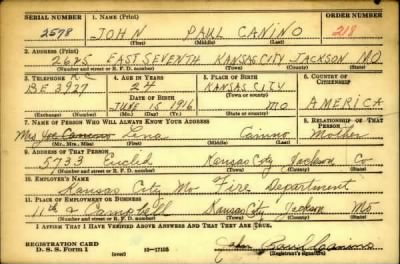 SERIAL NUMBER 1. NAME (Print) ORDER NUMBER
2578 JOHN PAUL CANINO 218
(First) (Middle) (Last)
2. ADDRESS (Print)
2625 EAST SEVENTH KANSAS CITY JACKSON MO
(Number and street or R. F. D. number) (Town) (County) (State)
3. TELEPHONE 4. AGE IN YEARS 5. PLACE OF BIRTH 6. COUNTRY OF CITIZENSHIP
K C 24 KANSAS CITY
BE 3927 DATE OF BIRTH (Town or county)
JUNE 15 1916 MO AMERICA
(Exchange) (Number) (Mo.) (Day) (Yr.) (State or country)
7. NAME OF PERSON WHO WILL ALWAYS KNOW YOUR ADDRESS 8. RELATIONSHIP OF THAT PERSON
Mrs Lena Canino Mother
(Mr., Mrs., Miss) (First) (Middle) (Last)
9. ADDRESS OF THAT PERSON
5733 Euclid Kansas City Jackson Co
(Number and street or R. F. D. number) (Town) (County) (State)
10. EMPLOYER'S NAME
Kansas City Mo Fire Department
11. PLACE OF EMPLOYMENT OR BUSINESS
11th & Campbell Kansas City Jackson Mo
(Number and street or R. F. D. number) (Town) (County) (State)
I AFFIRM THAT I HAVE VERIFIED ABOVE ANSWERS AND THAT THEY ARE TRUE.
REGISTRATION CARD
D. S. S. Form 1 16-17105 John Paul Canino
(Registrant's signature)